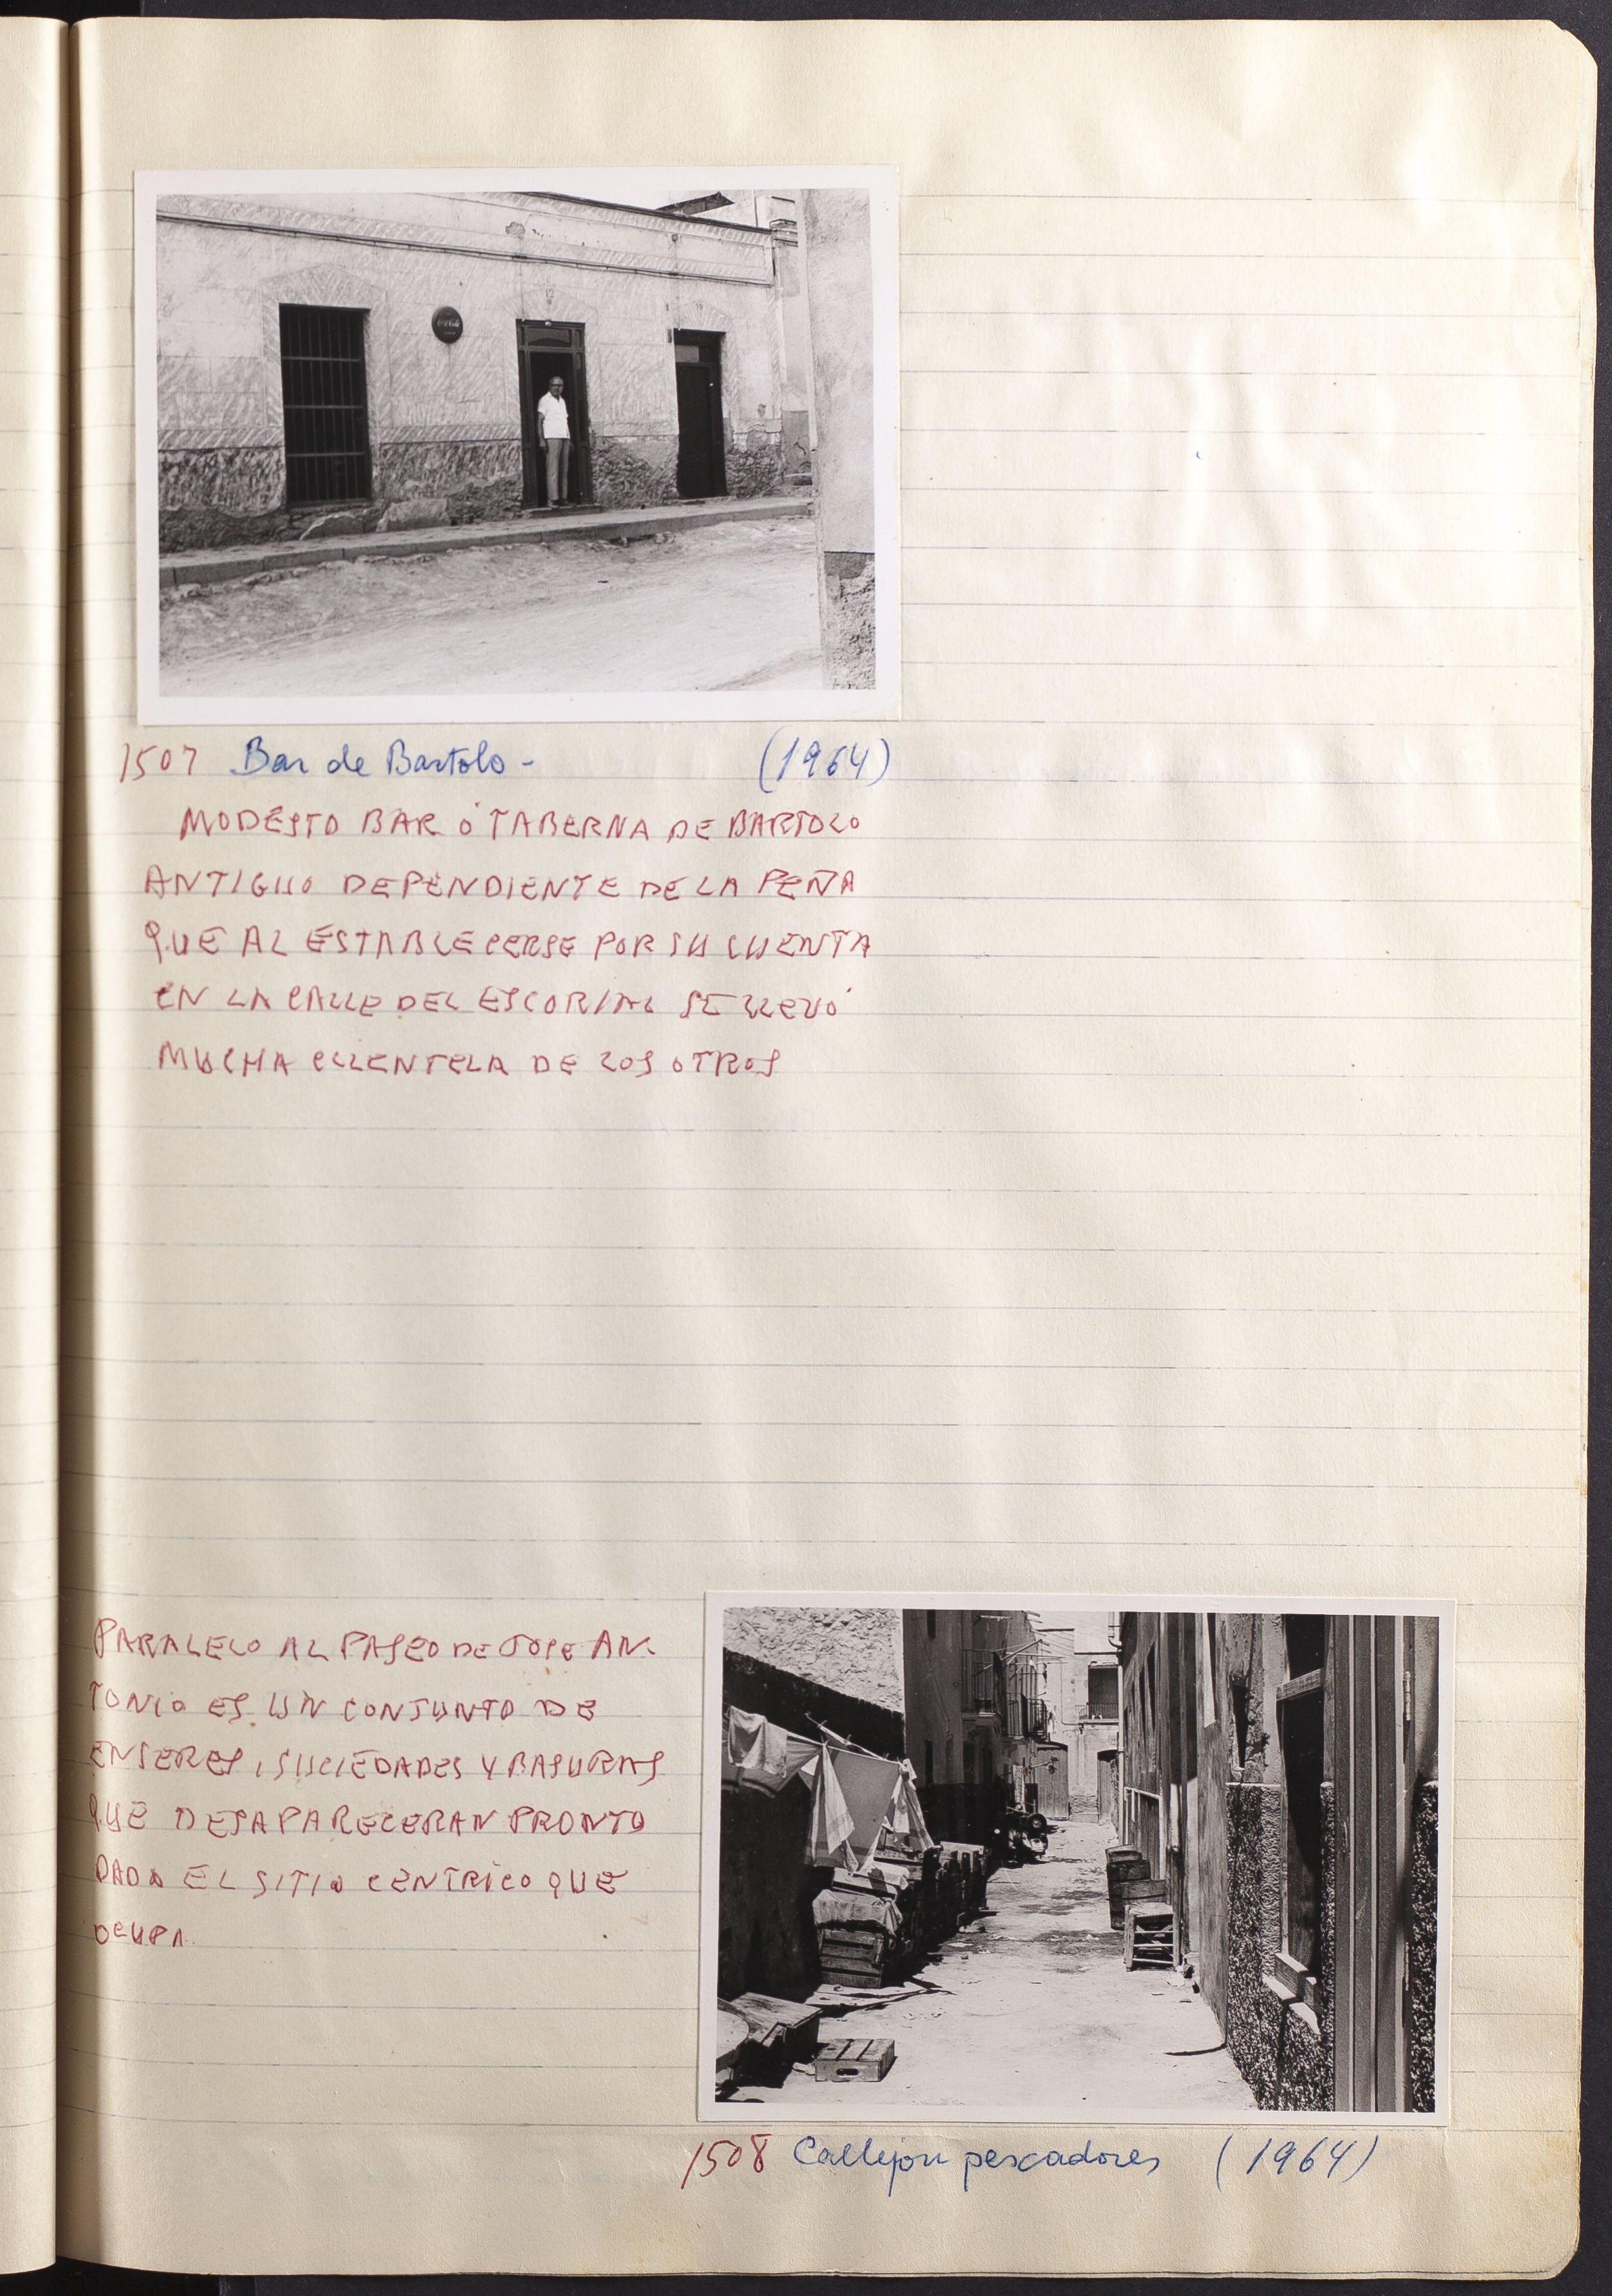 Coca-Cola
12
1507 Bar de Bartolo - (1964)
MODESTO BAR Ó TABERNA DE BARTOLO
ANTIGUO DEPENDIENTE DE LA PEÑA
QUE AL ESTABLECERSE POR SU CUENTA
EN LA CALLE DEL ESCORIAL SE LLEVÓ
MUCHA CLIENTELA DE LOS OTROS
PARALELO AL PASEO DE JOSE AN-
TONIO ES UN CONJUNTO DE
ENSERES, SUCIEDADES Y BASURAS
QUE DESAPARECERAN PRONTO
DADO EL SITIO CENTRICO QUE
OCUPA
1508 Callejon pescadores (1964)